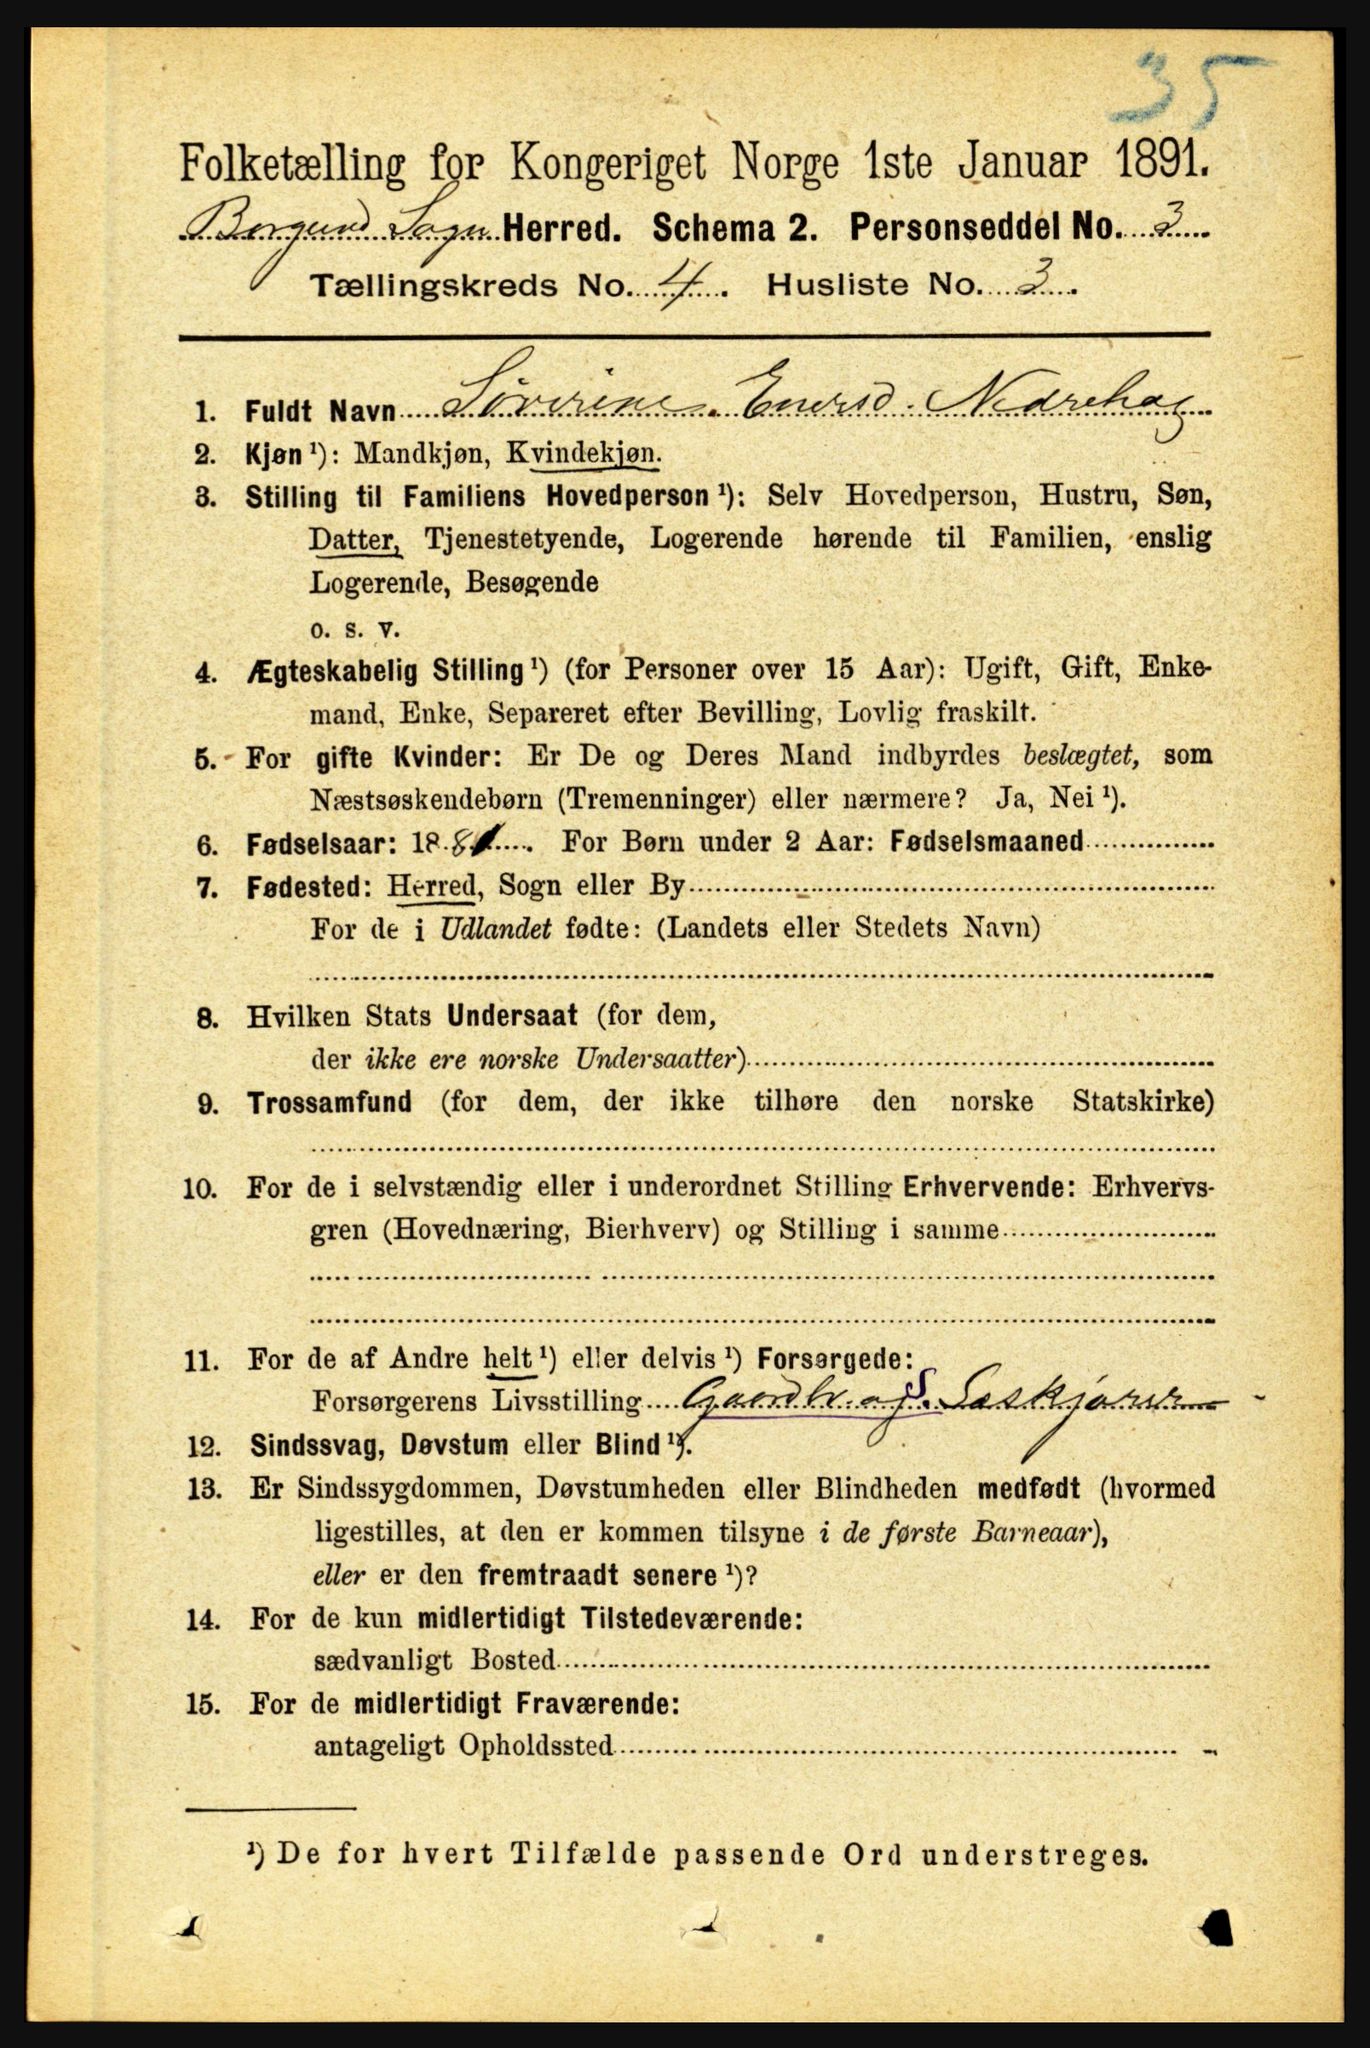 35
Folketælling for Kongeriget Norge 1ste Januar 1891.
Borgund Sogn Herred. Schema 2. Personseddel No. 3
Tællingskreds No. 4. Husliste No. 3.
1. Fuldt Navn Nedrehag
2. Kjøn ¹): Mandkjøn, Kvindekjøn.
3. Stilling til Familiens Hovedperson ¹): Selv Hovedperson, Hustru, Søn,
Datter, Tjenestetyende, Logerende hørende til Familien, enslig
Logerende, Besøgende
o. s. v.
4. Ægteskabelig Stilling ¹) (for Personer over 15 Aar): Ugift, Gift, Enke-
mand, Enke, Separeret efter Bevilling, Lovlig fraskilt.
5. For gifte Kvinder: Er De og Deres Mand indbyrdes beslægtet, som
Næstsøskendebørn (Tremenninger) eller nærmere? Ja, Nei ¹).
6. Fødselsaar: 1881. For Børn under 2 Aar: Fødselsmaaned
7. Fødested: Herred, Sogn eller By
For de i Udlandet fødte: (Landets eller Stedets Navn)
8. Hvilken Stats Undersaat (for dem,
der ikke ere norske Undersaatter)
9. Trossamfund (for dem, der ikke tilhøre den norske Statskirke)
10. For de i selvstændig eller i underordnet Stilling Erhvervende: Erhvervs-
gren (Hovednæring, Bierhverv) og Stilling i samme
11. For de af Andre helt ¹) eller delvis ¹) Forsørgede:
Forsørgerens Livsstilling Gaardbr. og
12. Sindssvag, Døvstum eller Blind ¹).
13. Er Sindssygdommen, Døvstumheden eller Blindheden medfødt (hvormed
ligestilles, at den er kommen tilsyne i de første Barneaar),
eller er den fremtraadt senere ¹)?
14. For de kun midlertidigt Tilstedeværende:
sædvanligt Bosted
15. For de midlertidigt Fraværende:
antageligt Opholdssted
¹) De for hvert Tilfælde passende Ord understreges.